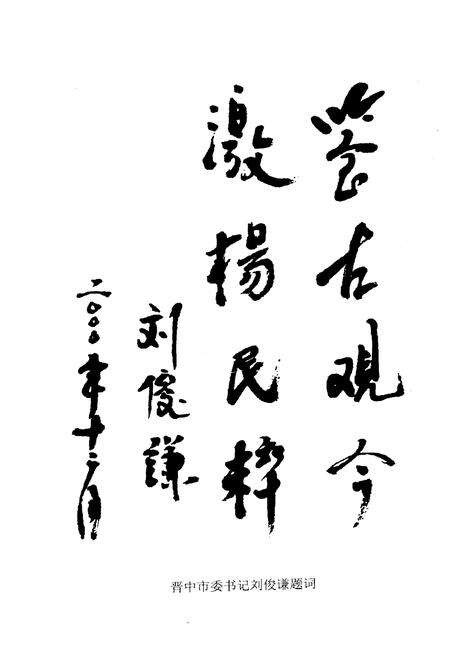 鉴古观今
激揚民粹
刘俊謙
二〇〇〇年十二月
晋中市委书记刘俊谦题词